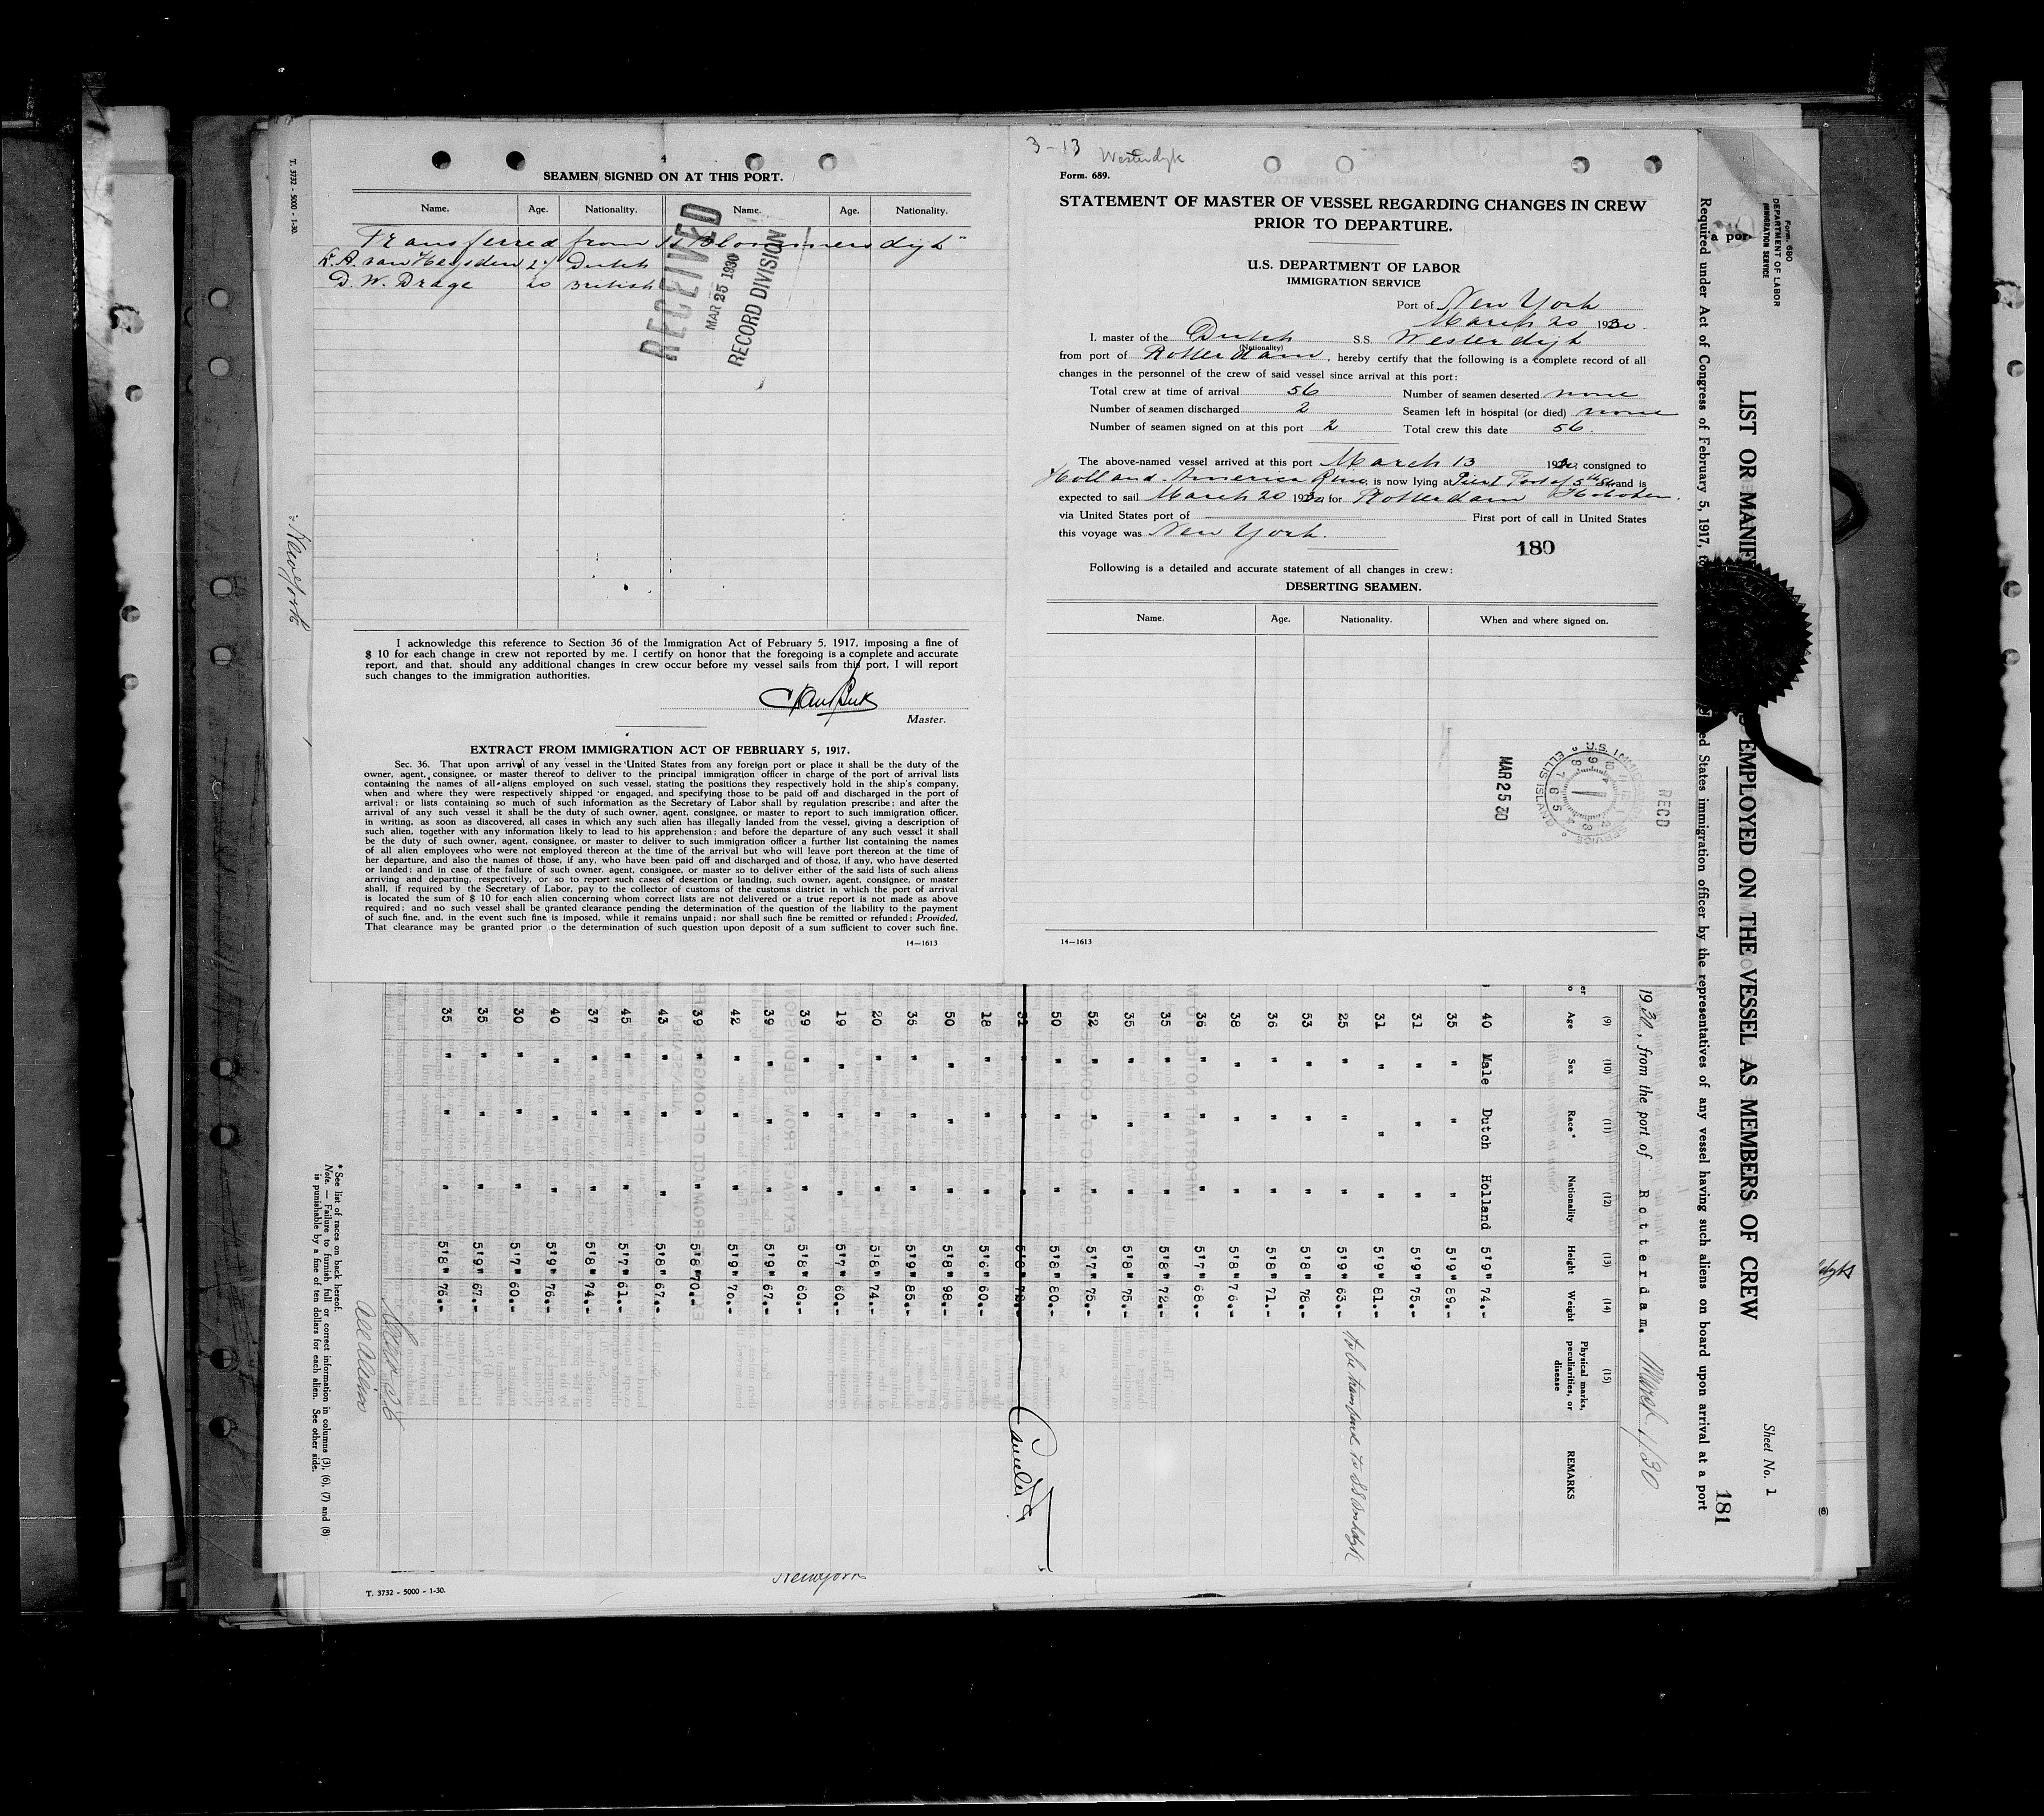 T. 3732 - 5000 - 1-30.
4
SEAMEN SIGNED ON AT THIS PORT.
Name. Age. Nationality. Name. Age. Nationality.
Transferred from SS Blommersdijk"
van Heusden Dutch
D. W. Drage 20 British
RECEIVED
MAR 25 1930
RECORD DIVISION
New York
I acknowledge this reference to Section 36 of the Immigration Act of February 5, 1917, imposing a fine of
$ 10 for each change in crew not reported by me. I certify on honor that the foregoing is a complete and accurate
report, and that, should any additional changes in crew occur before my vessel sails from this port, I will report
such changes to the immigration authorities.
Master.
EXTRACT FROM IMMIGRATION ACT OF FEBRUARY 5, 1917.
Sec. 36. That upon arrival of any vessel in the United States from any foreign port or place it shall be the duty of the
owner, agent, consignee, or master thereof to deliver to the principal immigration officer in charge of the port of arrival lists
containing the names of all aliens employed on such vessel, stating the positions they respectively hold in the ship's company,
when and where they were respectively shipped or engaged, and specifying those to be paid off and discharged in the port of
arrival; or lists containing so much of such information as the Secretary of Labor shall by regulation prescribe; and after the
arrival of any such vessel it shall be the duty of such owner, agent, consignee, or master to report to such immigration officer,
in writing, as soon as discovered, all cases in which any such alien has illegally landed from the vessel, giving a description of
such alien, together with any information likely to lead to his apprehension; and before the departure of any such vessel it shall
be the duty of such owner, agent, consignee, or master to deliver to such immigration officer a further list containing the names
of all alien employees who were not employed thereon at the time of the arrival but who will leave port thereon at the time of
her departure, and also the names of those, if any, who have been paid off and discharged and of those, if any, who have deserted
or landed; and in case of the failure of such owner, agent, consignee, or master so to deliver either of the said lists of such aliens
arriving and departing, respectively, or so to report such cases of desertion or landing, such owner, agent, consignee, or master
shall, if required by the Secretary of Labor, pay to the collector of customs of the customs district in which the port of arrival
is located the sum of $ 10 for each alien concerning whom correct lists are not delivered or a true report is not made as above
required; and no such vessel shall be granted clearance pending the determination of the question of the liability to the payment
of such fine, and, in the event such fine is imposed, while it remains unpaid; nor shall such fine be remitted or refunded; Provided,
That clearance may be granted prior to the determination of such question upon deposit of a sum sufficient to cover such fine.
14—1613
3-13 Westerdyk
Form. 689.
STATEMENT OF MASTER OF VESSEL REGARDING CHANGES IN CREW
PRIOR TO DEPARTURE.
U.S. DEPARTMENT OF LABOR
IMMIGRATION SERVICE
Port of New York
March 20 1930.
I. master of the Dutch S.S. Westerdijk
(Nationality)
from port of Rotterdam, hereby certify that the following is a complete record of all
changes in the personnel of the crew of said vessel since arrival at this port:
Total crew at time of arrival 56 Number of seamen deserted none
Number of seamen discharged 2 Seamen left in hospital (or died) none
Number of seamen signed on at this port 2 Total crew this date 56.
The above-named vessel arrived at this port March 13 1930, consigned to
Holland America Line, is now lying at Pier 1 Foot of 5th Str and is
expected to sail March 20 1930 for Rotterdam Hoboken.
via United States port of First port of call in United States
this voyage was New York.
180
Following is a detailed and accurate statement of all changes in crew:
DESERTING SEAMEN.
Name. Age. Nationality. When and where signed on.
MAR 25 30
U.S. IMMIGRATION SERVICE ELLIS ISLAND
RECD
14—1613
Form. 680
DEPARTMENT OF LABOR
IMMIGRATION SERVICE
LIST OR MANIF EMPLOYED ON THE VESSEL AS MEMBERS OF CREW
Sheet No. 1
181
Required under Act of Congress of February 5, 1917, ed States immigration officer by the representatives of any vessel having such aliens on board upon arrival at a port
1930, from the port of Rotterdam. March 1/30
(9) (10) (11) (12) (13) (14) (15)
Age Sex Race* Nationality Height Weight Physical marks, peculiarities, or disease REMARKS
40 Male Dutch Holland 5'9" 74.-
35 " " " 5'9" 89.-
31 " " " 5'9" 75.-
31 " " " 5'9" 81.-
25 " " " 5'9" 63.- to be transferred to SS
53 " " " 5'8" 78.-
36 " " " 5'8" 71.-
38 " " " 5'8" 76.-
36 " " " 5'7" 68.-
35 " " " 5'8" 72.-
35 " " " 5'8" 75.-
52 " " " 5'7" 75.-
50 " " " 5'8" 80.-
Cancelled
18 " " " 5'6" 60.-
50 " " " 5'8" 98.-
36 " " " 5'9" 85.-
20 " " " 5'8" 74.-
19 " " " 5'7" 60.-
39 " " " 5'8" 60.-
39 " " " 5'9" 67.-
42 " " " 5'9" 70.-
39 " " " 5'8" 70.-
43 " " " 5'8" 67.-
45 " " " 5'7" 61.-
37 " " " 5'8" 74.-
40 " " " 5'9" 76.-
30 " " " 5'7" 60.-
35 " " " 5'9" 67.-
35 " " " 5'8" 76.-
All Aliens
* See list of races on back hereof.
Note. — Failure to furnish full or correct information in columns (3), (6), (7) and (8)
is punishable by a fine of ten dollars for each alien. See other side.
(8)
T. 3732 - 5000 - 1-30.
New York